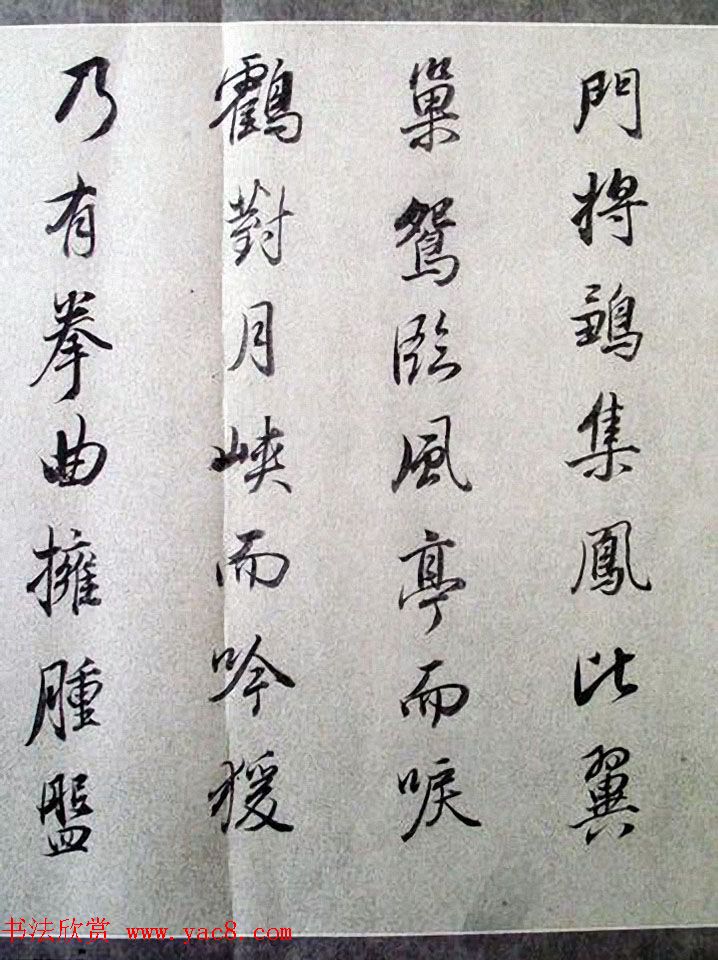 門將鶵集鳳比翼
巢鴛臨風亭而唳
鸖對月峽而吟猨
乃有拳曲擁腫盤
书法欣赏 www.yac8.com